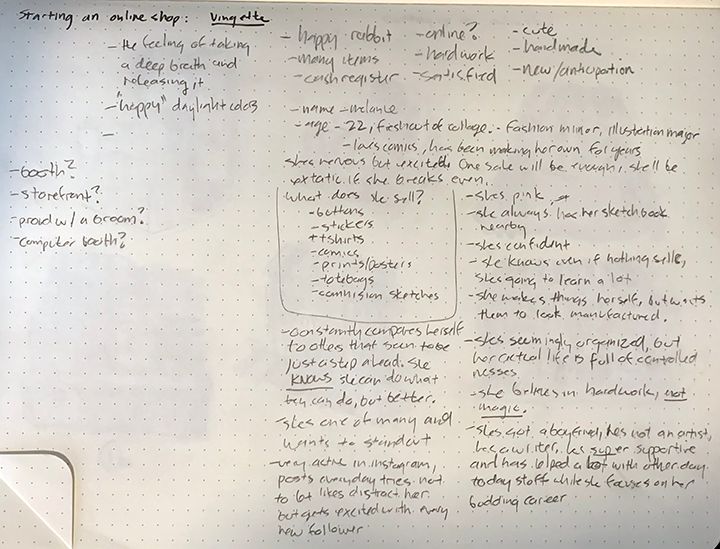 Starting an online shop: Vingette
- the feeling of taking
a deep breath and
releasing it
- "happy" daylight colors
-
- booth?
- storefront?
- proud w/ a broom?
- computer booth?
- happy rabbit
- many items
- cash register
- online?
- hardwork
- satisfied
- cute
- handmade
- new/anticipation
- name - melanie
- age - 22, fresh out of collage. - Fashion minor, illustration major
- loves comics, has been making her own for years
shes nervous but excited. One sale will be enough, she'll be
extatic if she breaks even.
What does she sell?
- buttons
- stickers
- tshirts
- comics
- prints/posters
- totebags
- commision sketches
- constantly compares herself
to others that seem to be
just a step ahead. She
KNOWS she can do what
they can do, but better.
- shes one of many and
wants to standout
- very active in instagram,
posts everyday tries not
to let likes distract her
but gets excited with every
new follower
- shes pink
- she always has her sketchbook
nearby
- shes confident
- she knows even if nothing sells,
shes going to learn a lot
- she makes things herself, but wants
them to look manufactured.
- shes seemingly organized, but
her actual life is full of controlled
messes
- she believes in hardwork, not
magic.
- shes got a boyfriend, hes not an artist,
hes a writer, hes super supportive
and has helped a lot with other day
to day stuff while she focuses on her
budding career